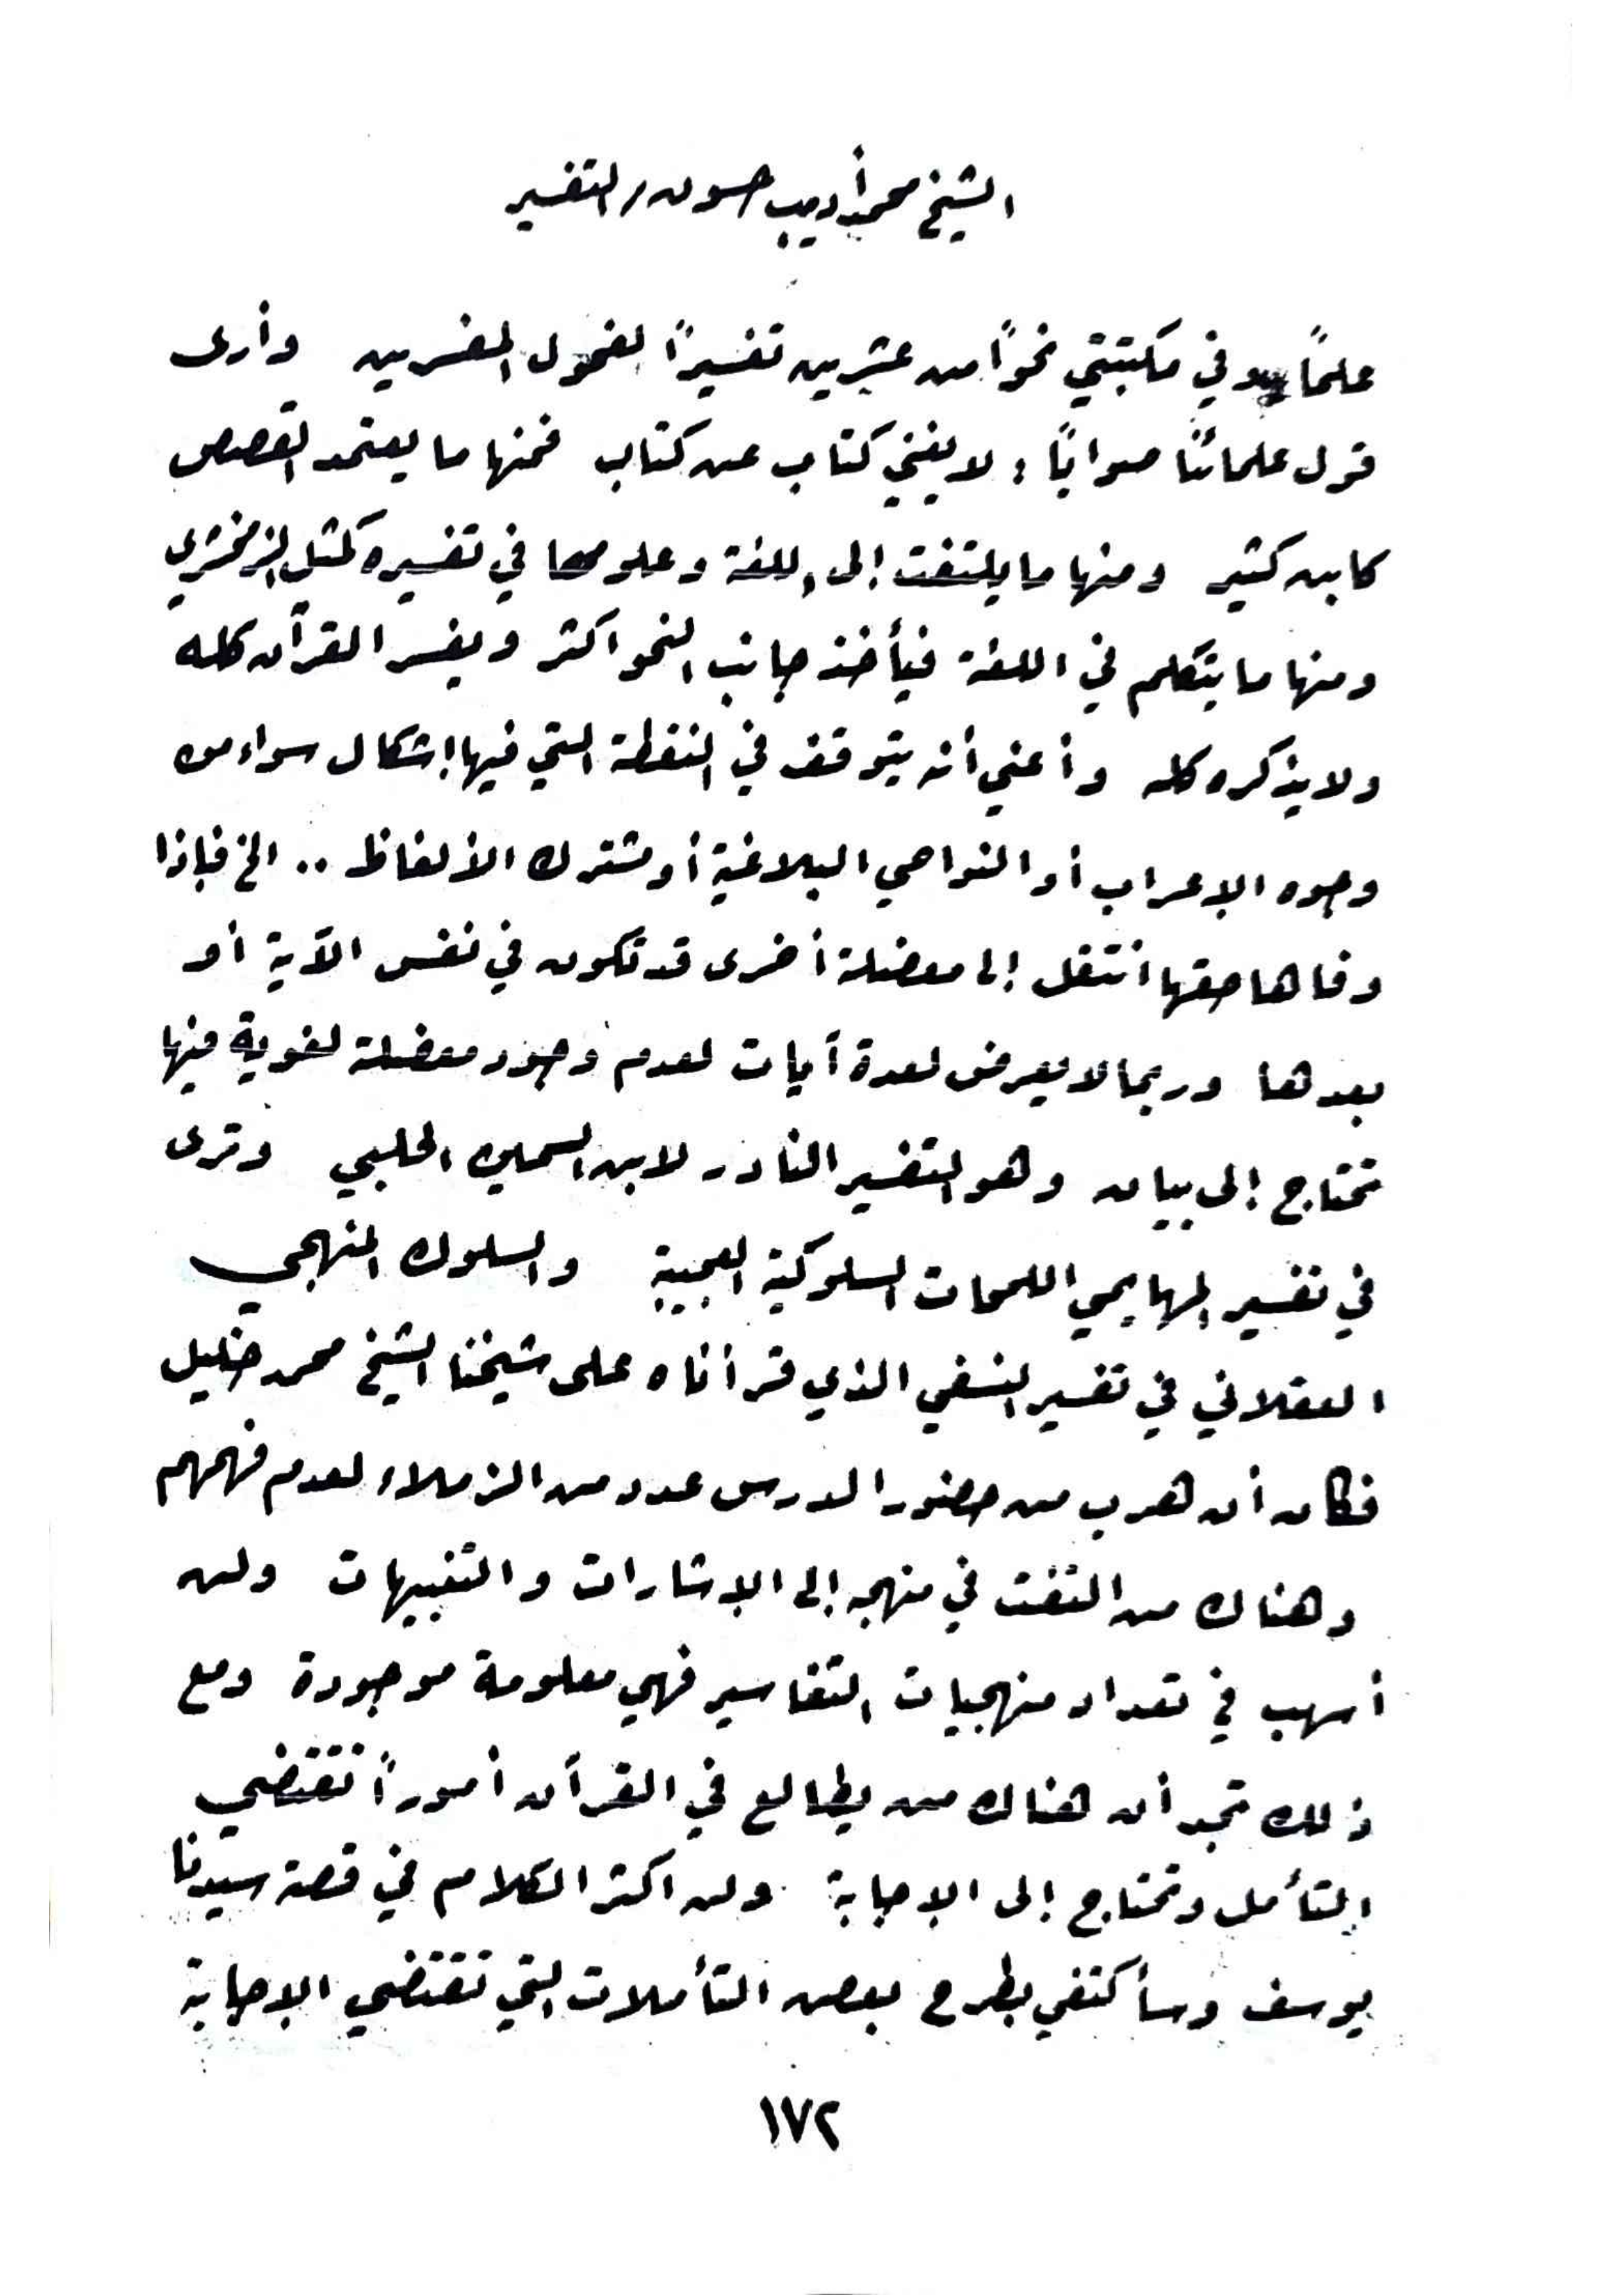 الشيخ محمد أديب حسون / التفسير
علماً وفي مكتبتي نحواً من عشرين تفسيراً لفحول المفسرين وأرى
قول علمائنا صواباً، لا يغني كتاب عن كتاب فمنها ما يعتمد القصص
كابن كثير ومنها ما يلتفت إلى اللغة وعلومها في تفسيره كمثل الزمخشري
ومنها ما يتكلم في اللغة فيأخذ جانب النحو اكثر ويفسر القرآن كله
ولا يذكره كله وأعني أنه يتوقف في النقطة التي فيها إشكال سواء من
وجوه الإعراب أو النواحي البلاغية أو مشترك الألفاظ .. الخ فإذا
وفاها حقها انتقل إلى معضلة أخرى قد تكون في نفس الآية أو
بعدها وربما لا يعرض لعدة آيات لعدم وجود معضلة لغوية فيها
تحتاج إلى بيان وهو التفسير النادر لابن السمين الحلبي وترى
في تفسير المهايمي اللمحات السلوكية العجيبة والسلوك المنهجي
العقلاني في تفسير النسفي الذي قرأناه على شيخنا الشيخ محمد خليل
فكان أن هرب من حضور الدرس عدد من الزملاء لعدم فهمهم
وهناك من التفت في منهجه إلى الإشارات والتنبيهات ولن
أسهب في تعداد منهجيات التفاسير فهي معلومة موجودة ومع
ذلك تجد أن هناك من يطالع في القرآن أموراً تقتضي
التأمل وتحتاج إلى الإجابة ولن اكثر الكلام في قصة سيدنا
يوسف وسأكتفي بطرح بعض التأملات التي تقتضي الإجابة
١٧٢